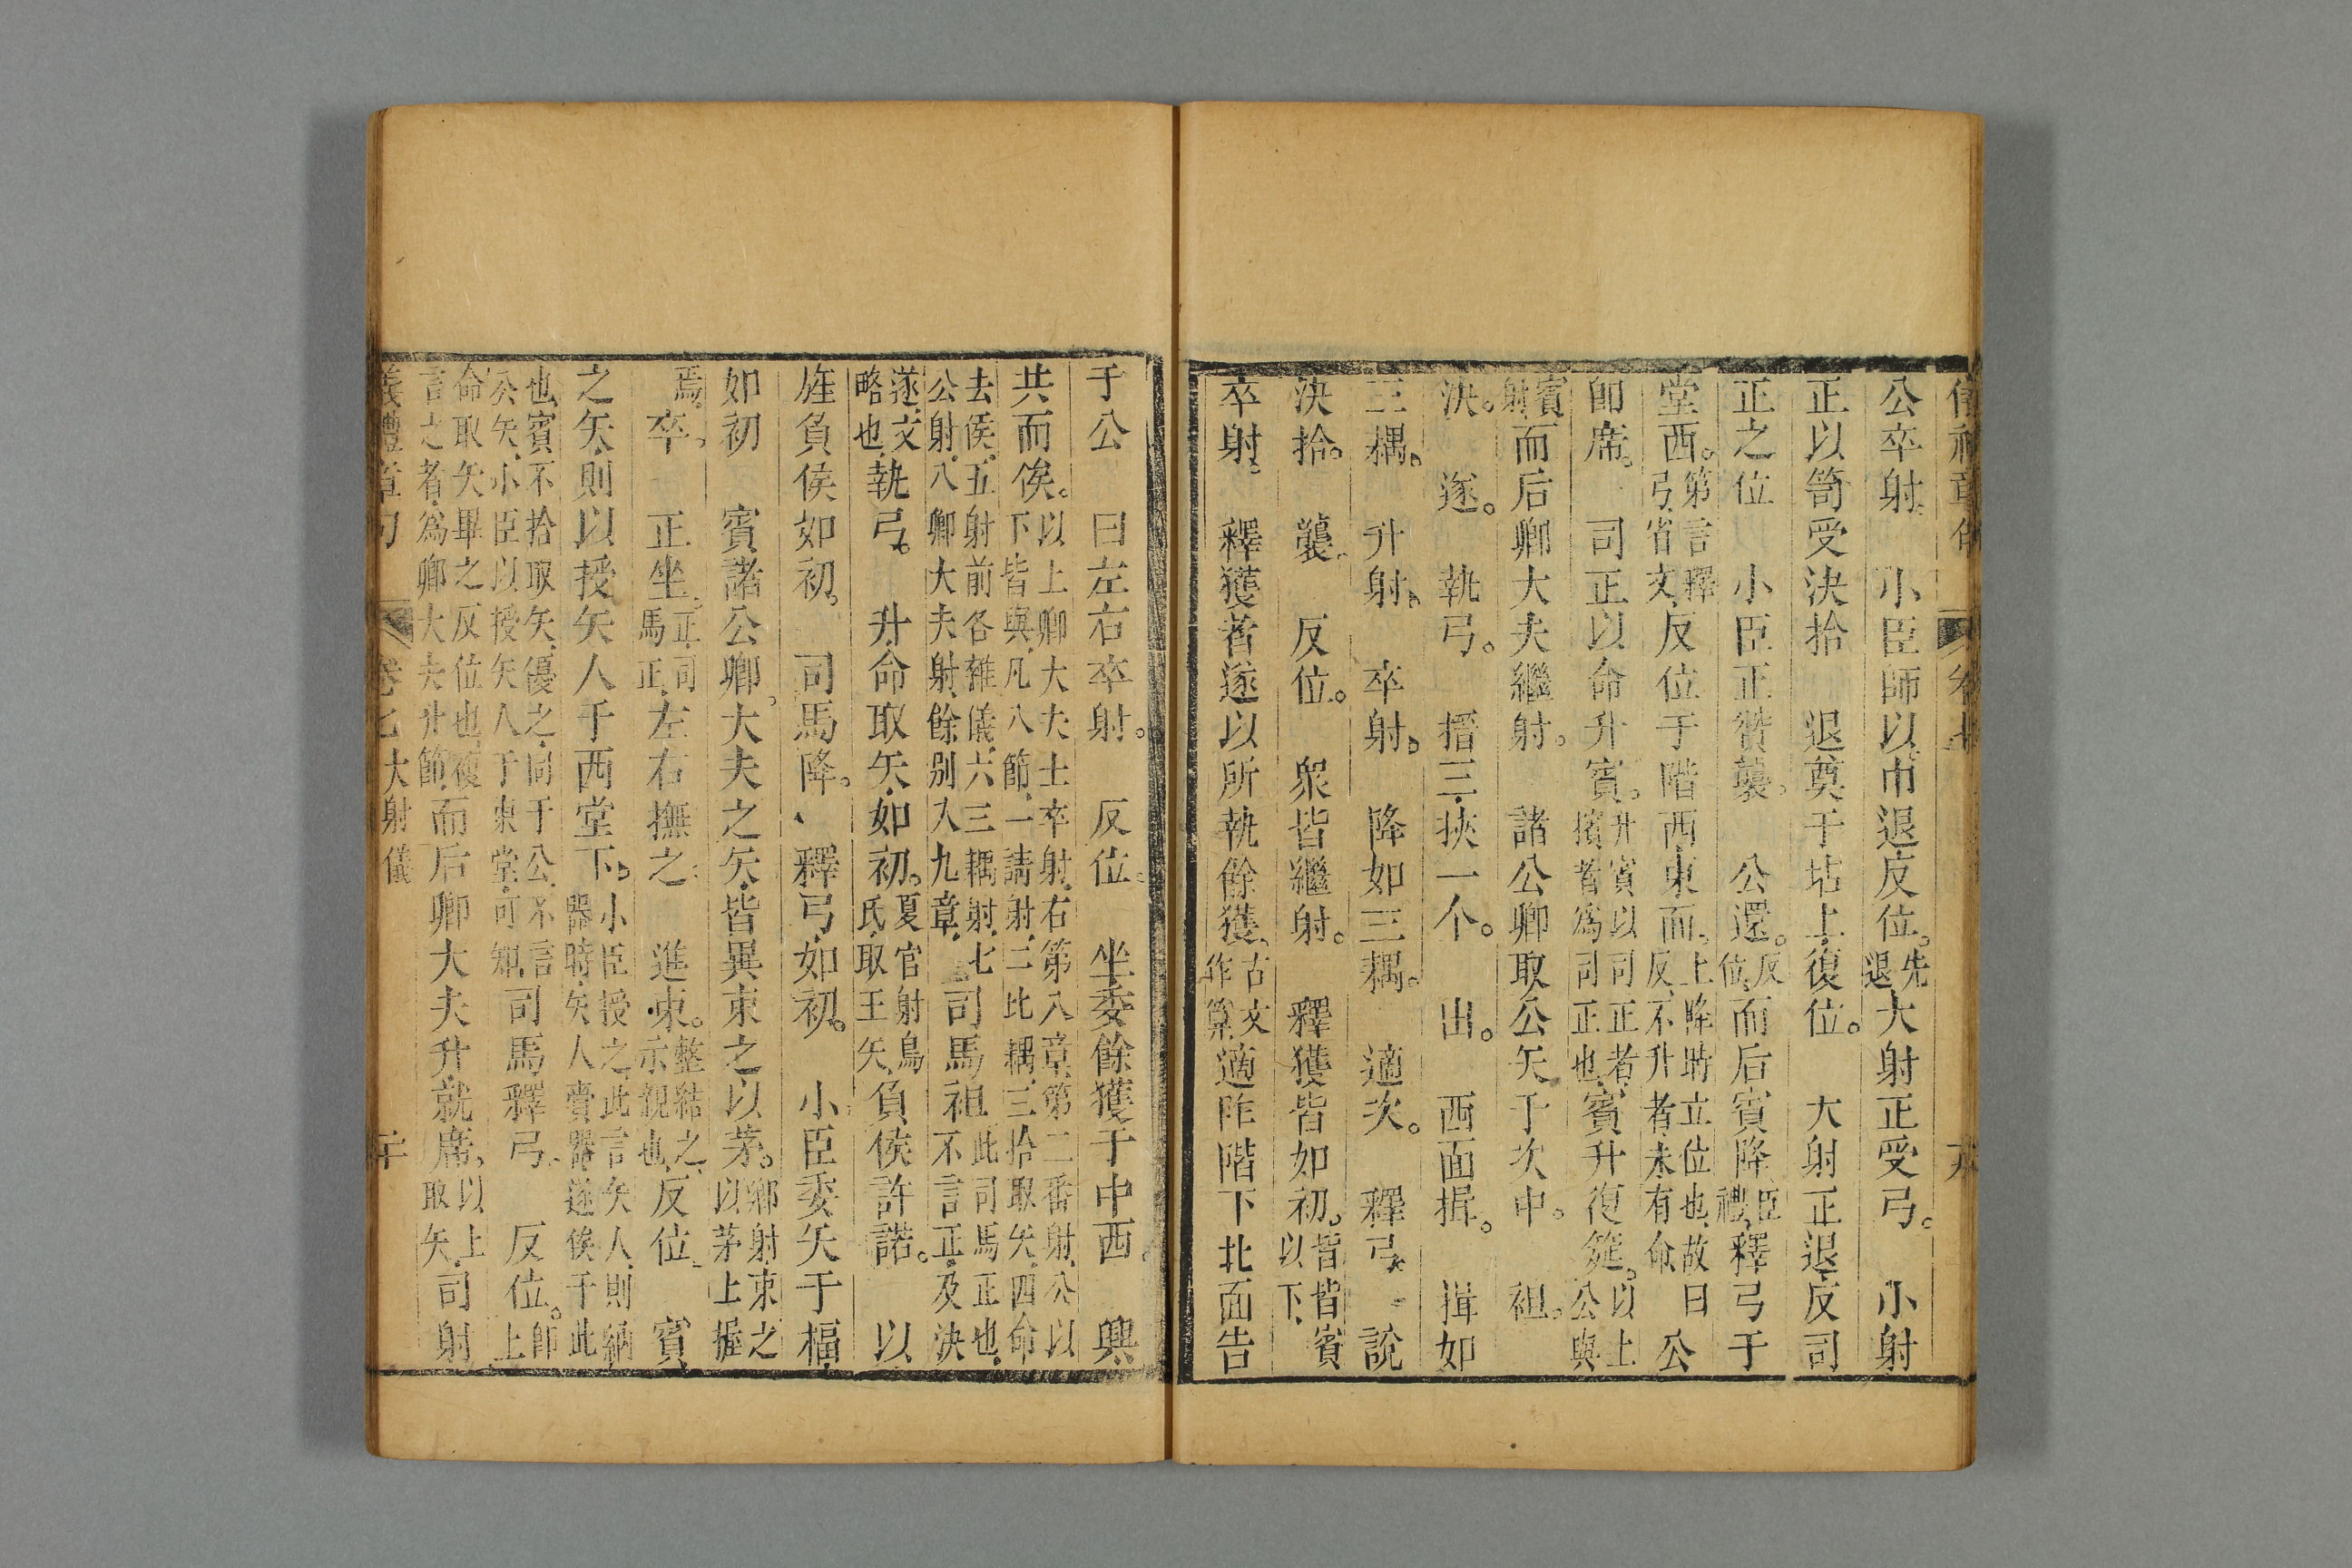 儀禮章句 卷七
公卒射 小臣師以巾退反位。先退大射正受弓。 小射
正以笥受決拾 退奠于坫上、復位。 大射正退、反司
正之位 小臣正贊襲。 公還。反位、而后賓降臣禮、釋弓于
堂西。第言釋弓、省文、反位于階西東面。上降時立位也、故曰反、不升者、未有命 公
卽席。 司正以命升賓。升賓以司正者、擯者為司正也、賓升復筵。以上公與
賓射而后卿大夫繼射。 諸公卿取公矢于次中。 袒。
決。 遂。 執弓。 搢三、挾一个。 出。 西面揖。 揖如
三耦。 升射。 卒射。 降如三耦。 適次。 釋弓、 說
決拾。 襲、 反位。 衆皆繼射。 釋獲皆如初。皆皆賓以下、
卒射、 釋獲者遂以所執餘獲、古文作算適阼階下北面告
于公 曰左右卒射。 反位。 坐委餘獲于中西。 興、
共而俟。以上卿大夫士卒射、右第八章、第二番射、公以下皆與、凡八節、一請射、二比耦、三拾取矢、四命
去侯、五射前各雜儀、六三耦射、七公射、八卿大夫射、餘别入九章、 司馬袒此司馬正也、不言正、及決
遂、文略也、執弓。 升、命取矢、如初。夏官射鳥氏、取王矢、負侯許諾。 以
旌負侯如初。 司馬降。 釋弓、如初。 小臣委矢于楅、
如初 賓諸公卿。大夫之矢、皆異束之以茅。鄉射束之以茅上握
焉。卒、 正坐。正、司馬正、左右撫之 進束。整結之、示親也、反位 賓
之矢、則以授矢人于西堂下。小臣授之、此言矢人、則納器時、矢人賫器、遂俟于此
也、賓不拾取矢、優之、同于公、不言公矢、小臣以授矢人于東堂、可知、司馬釋弓、 反位。卽上
命取矢畢之反位也、複言之者、為卿大夫升節、而后卿大夫升、就席、以上取矢、司射
儀禮章句 卷七大射儀 二十